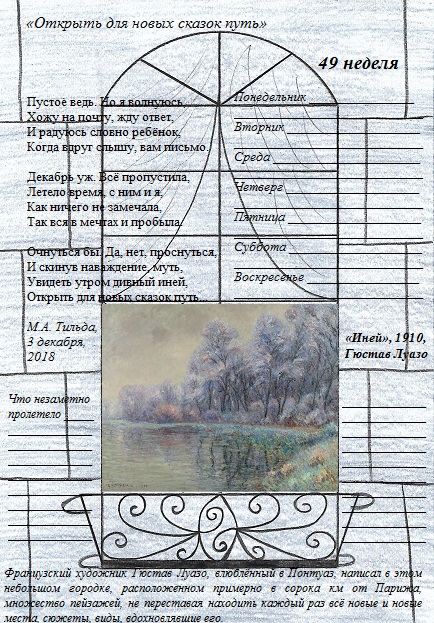 «Открыть для новых сказок путь»
49 неделя
Пустое ведь. Но я волнуюсь,
Хожу на почту, жду ответ,
И радуюсь словно ребёнок,
Когда вдруг слышу, вам письмо.
Декабрь уж. Всё пропустила,
Летело время, с ним и я,
Как ничего не замечала,
Так вся в мечтах и пробыла.
Очнуться бы. Да, нет, проснуться,
И скинув наваждение, муть,
Увидеть утром дивный иней,
Открыть для новых сказок путь.
М.А. Тильда,
3 декабря,
2018
Понедельник
Вторник
Среда
Четверг
Пятница
Суббота
Воскресенье
«Иней», 1910,
Гюстав Луазо
Что незаметно
пролетело
Французский художник Гюстав Луазо, влюблённый в Понтуаз, написал в этом
небольшом городке, расположенном примерно в сорока км от Парижа,
множество пейзажей, не переставая находить каждый раз всё новые и новые
места, сюжеты, виды, вдохновлявшие его.